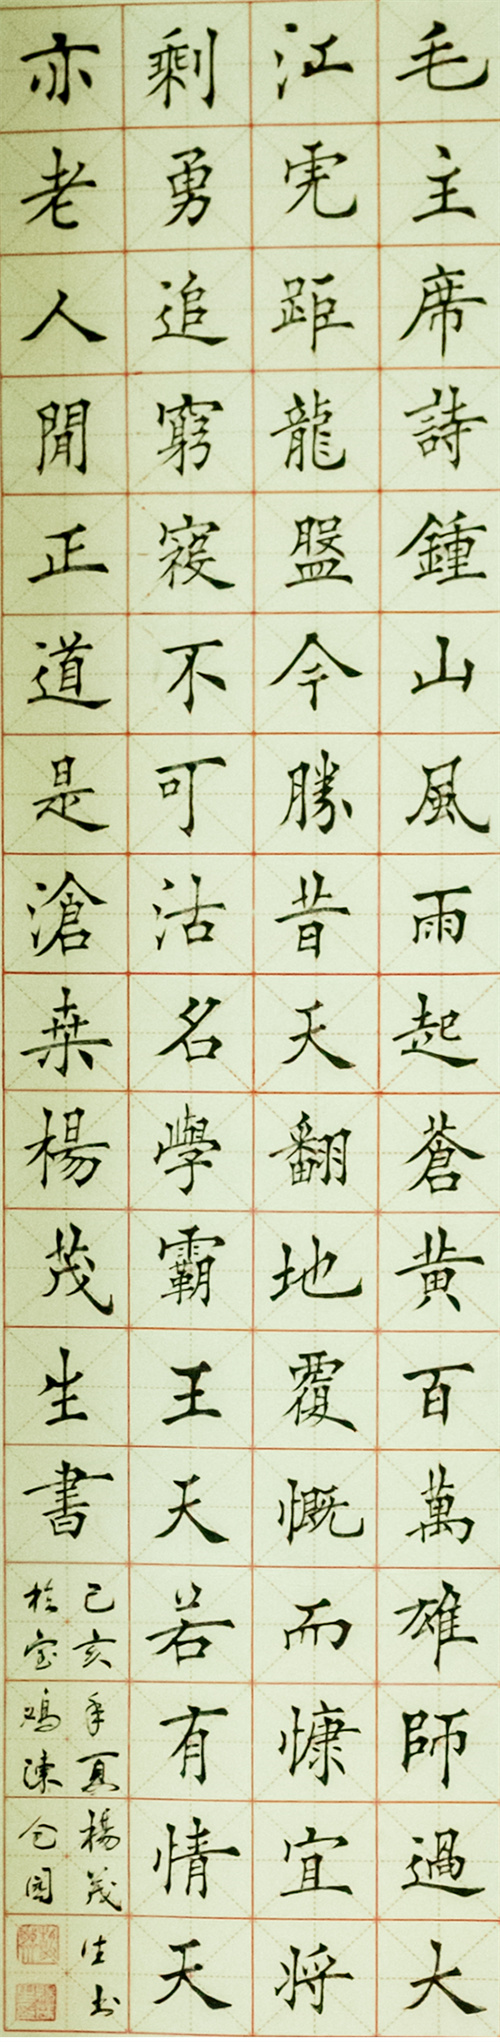 毛主席詩鍾山風雨起蒼黄百萬雄師過大
江虎距龍盤今勝昔天翻地覆慨而慷宜将
剩勇追窮寇不可沽名學霸王天若有情天
亦老人間正道是滄桒楊茂生書
己亥年夏楊茂生书
於宝鸡陳仓園